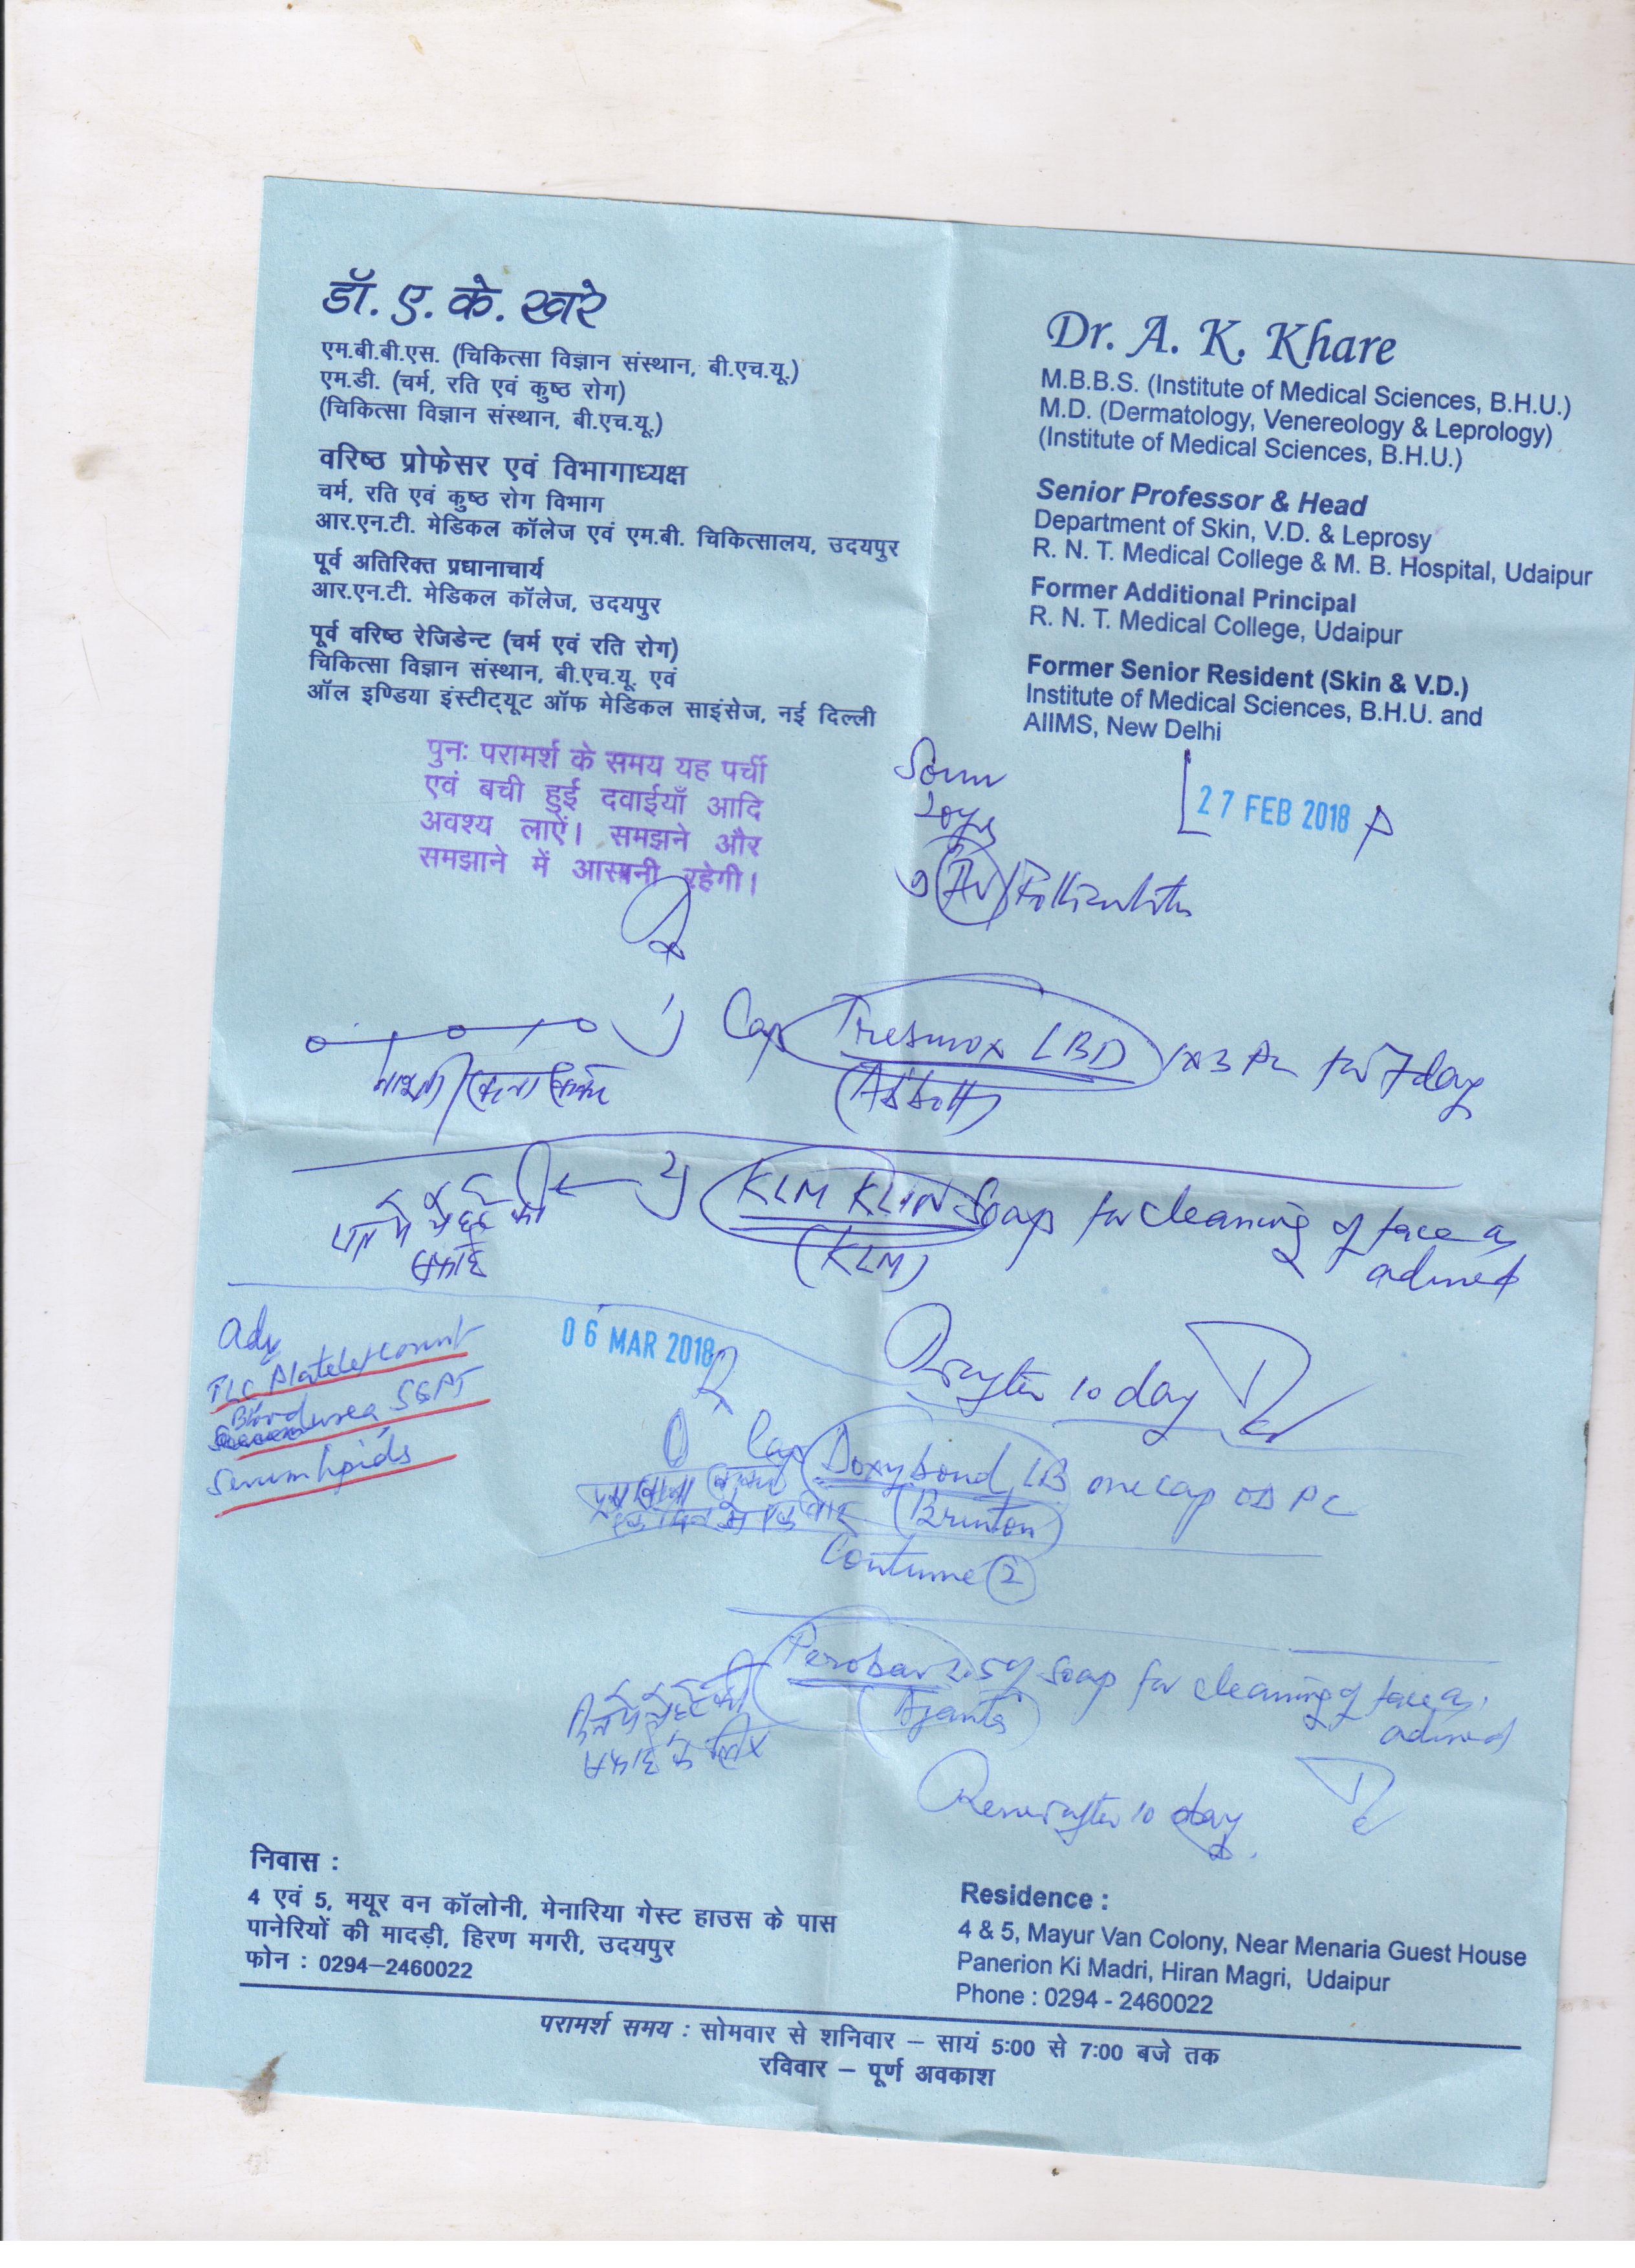 डॉ. ए. के. खरे
एम.बी.बी.एस. (चिकित्सा विज्ञान संस्थान, बी.एच.यू.)
एम.डी. (चर्म, रति एवं कुष्ठ रोग)
(चिकित्सा विज्ञान संस्थान, बी.एच.यू.)
वरिष्ठ प्रोफेसर एवं विभागाध्यक्ष
चर्म, रति एवं कुष्ठ रोग विभाग
आर.एन.टी. मेडिकल कॉलेज एवं एम.बी. चिकित्सालय, उदयपुर
पूर्व अतिरिक्त प्रधानाचार्य
आर.एन.टी. मेडिकल कॉलेज, उदयपुर
पूर्व वरिष्ठ रेजिडेन्ट (चर्म एवं रति रोग)
चिकित्सा विज्ञान संस्थान, बी.एच.यू. एवं
ऑल इण्डिया इंस्टीट्यूट ऑफ मेडिकल साइंसेज, नई दिल्ली
Dr. A. K. Khare
M.B.B.S. (Institute of Medical Sciences, B.H.U.)
M.D. (Dermatology, Venereology & Leprology)
(Institute of Medical Sciences, B.H.U.)
Senior Professor & Head
Department of Skin, V.D. & Leprosy
R. N. T. Medical College & M. B. Hospital, Udaipur
Former Additional Principal
R. N. T. Medical College, Udaipur
Former Senior Resident (Skin & V.D.)
Institute of Medical Sciences, B.H.U. and
AIIMS, New Delhi
पुनः परामर्श के समय यह पर्ची
एवं बची हुई दवाईयाँ आदि
अवश्य लाऐं। समझने और
समझाने में आसानी रहेगी।
27 FEB 2018
(AV) Folliculitis
1) Cap Tresmox LBD 1x3 Pc for 7 day
(Abbott)
2) KLM KLIN Soap for cleaning of face as
(KLM) advised
after 10 day
Adv
TLC Platelet count
Blood urea SGPT
Serum lipids
06 MAR 2018
Cap Doxybond LB one cap OD PC
(Brinton)
Continue (2)
Perobar 2.5% soap for cleaning of face as
(Ajanta) advised
Review after 10 day
निवास :
4 एवं 5, मयूर वन कॉलोनी, मेनारिया गेस्ट हाउस के पास
पानेरियों की मादड़ी, हिरण मगरी, उदयपुर
फोन : 0294–2460022
Residence :
4 & 5, Mayur Van Colony, Near Menaria Guest House
Panerion Ki Madri, Hiran Magri, Udaipur
Phone : 0294 - 2460022
परामर्श समय : सोमवार से शनिवार – सायं 5:00 से 7:00 बजे तक
रविवार – पूर्ण अवकाश